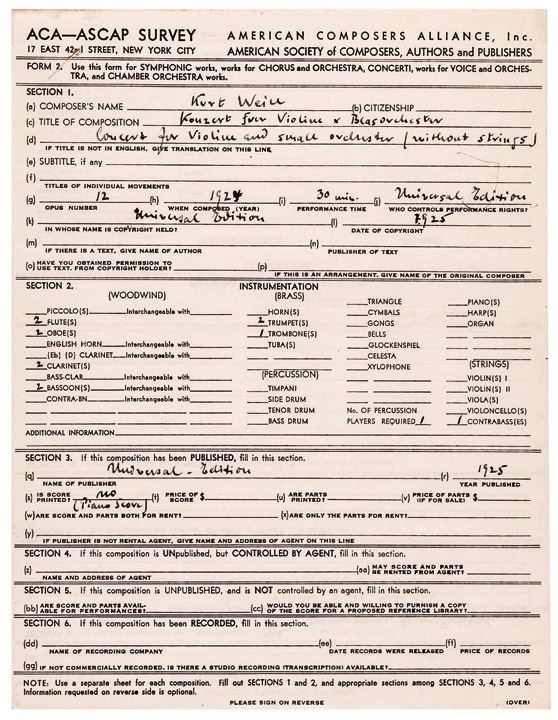 ACA—ASCAP SURVEY AMERICAN COMPOSERS ALLIANCE, Inc.
17 EAST 42nd STREET, NEW YORK CITY AMERICAN SOCIETY of COMPOSERS, AUTHORS and PUBLISHERS
FORM 2. Use this form for SYMPHONIC works, works for CHORUS and ORCHESTRA, CONCERTI, works for VOICE and ORCHES-
TRA, and CHAMBER ORCHESTRA works.
SECTION 1.
(a) COMPOSER'S NAME Kurt Weill (b) CITIZENSHIP
(c) TITLE OF COMPOSITION Konzert fuer Violine & Blasorchester
(d) Concert for Violine and small orchester (without strings)
IF TITLE IS NOT IN ENGLISH, GIVE TRANSLATION ON THIS LINE
(e) SUBTITLE, if any
(f)
TITLES OF INDIVIDUAL MOVEMENTS
(g) 12 (h) 1924 (i) 30 min. (j) Universal Edition
OPUS NUMBER WHEN COMPOSED (YEAR) PERFORMANCE TIME WHO CONTROLS PERFORMANCE RIGHTS?
(k) Universal Edition (l) 1925
IN WHOSE NAME IS COPYRIGHT HELD? DATE OF COPYRIGHT
(m) (n)
IF THERE IS A TEXT, GIVE NAME OF AUTHOR PUBLISHER OF TEXT
(o) HAVE YOU OBTAINED PERMISSION TO
USE TEXT, FROM COPYRIGHT HOLDER? (p)
IF THIS IS AN ARRANGEMENT, GIVE NAME OF THE ORIGINAL COMPOSER
SECTION 2. INSTRUMENTATION
(WOODWIND) (BRASS) TRIANGLE PIANO(S)
PICCOLO(S) Interchangeable with HORN(S) CYMBALS HARP(S)
2 FLUTE(S) Interchangeable with 2 TRUMPET(S) GONGS ORGAN
2 OBOE(S) Interchangeable with 1 TROMBONE(S) BELLS
ENGLISH HORN Interchangeable with TUBA(S) GLOCKENSPIEL
(Eb) (D) CLARINET Interchangeable with CELESTA
2 CLARINET(S) XYLOPHONE (STRINGS)
BASS-CLAR. Interchangeable with (PERCUSSION) VIOLIN(S) I
2 BASSOON(S) Interchangeable with TIMPANI VIOLIN(S) II
CONTRA-BN Interchangeable with SIDE DRUM VIOLA(S)
TENOR DRUM No. OF PERCUSSION VIOLONCELLO(S)
BASS DRUM PLAYERS REQUIRED 1 1 CONTRABASS(ES)
ADDITIONAL INFORMATION
SECTION 3. If this composition has been PUBLISHED, fill in this section.
(q) Universal-Edition (r) 1925
NAME OF PUBLISHER YEAR PUBLISHED
(s) IS SCORE PRINTED? no (t) PRICE OF SCORE $ (u) ARE PARTS PRINTED? (v) PRICE OF PARTS (IF FOR SALE) $
(Piano Score)
(w) ARE SCORE AND PARTS BOTH FOR RENT? (x) ARE ONLY THE PARTS FOR RENT?
(y)
IF PUBLISHER IS NOT RENTAL AGENT, GIVE NAME AND ADDRESS OF AGENT ON THIS LINE
SECTION 4. If this composition is UNpublished, but CONTROLLED BY AGENT, fill in this section.
(z) (aa) MAY SCORE AND PARTS BE RENTED FROM AGENT?
NAME AND ADDRESS OF AGENT
SECTION 5. If this composition is UNPUBLISHED, and is NOT controlled by an agent, fill in this section.
(bb) ARE SCORE AND PARTS AVAIL- (cc) WOULD YOU BE ABLE AND WILLING TO FURNISH A COPY
ABLE FOR PERFORMANCES? OF THE SCORE FOR A PROPOSED REFERENCE LIBRARY?
SECTION 6. If this composition has been RECORDED, fill in this section.
(dd) (ee) (ff)
NAME OF RECORDING COMPANY DATE RECORDS WERE RELEASED PRICE OF RECORDS
(gg) IF NOT COMMERCIALLY RECORDED, IS THERE A STUDIO RECORDING (TRANSCRIPTION) AVAILABLE?
NOTE: Use a separate sheet for each composition. Fill out SECTIONS 1 and 2, and appropriate sections among SECTIONS 3, 4, 5 and 6.
Information requested on reverse side is optional.
PLEASE SIGN ON REVERSE (OVER)